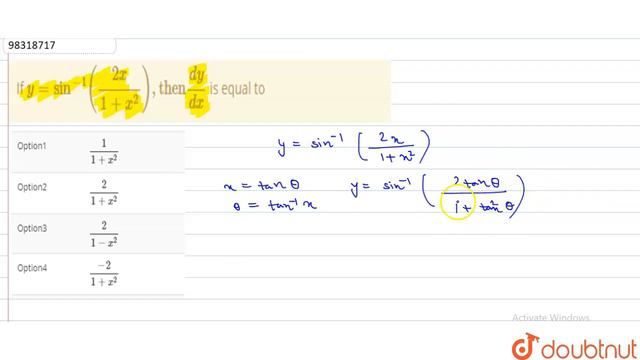 98318717
If y = sin⁻¹(2x/(1+x²)), then dy/dx is equal to
Option1 1/(1+x²)
Option2 2/(1+x²)
Option3 2/(1−x²)
Option4 −2/(1+x²)
y = sin⁻¹(2x/(1+x²))
x = tan θ y = sin⁻¹(2 tan θ/(1+tan² θ))
θ = tan⁻¹ x
Activate Windows
doubtnut